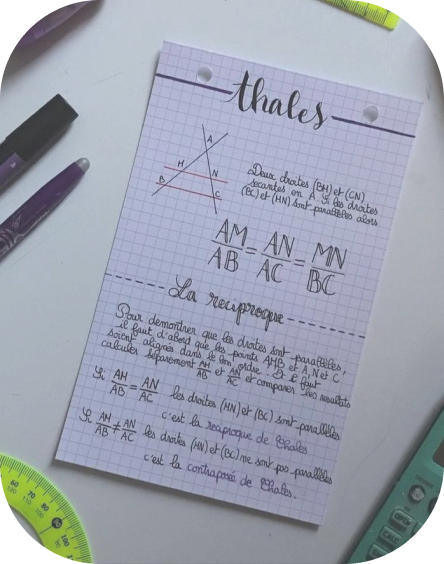 thales
A
M
N
B
C
Deux droites (BM) et (CN)
secantes en A. Si les droites
(BC) et (MN) sont parallèles alors
AM/AB = AN/AC = MN/BC
La réciproque
Pour démontrer que les droites sont parallèles,
il faut d'abord que les points AMB et A, N et C
soient alignés dans le m̂ ordre. Et il faut
calculer séparement AM/AB et AN/AC et comparer les résultats
Si AM/AB = AN/AC les droites (MN) et (BC) sont parallèles
c'est la réciproque de Thales
Si AM/AB ≠ AN/AC les droites (MN) et (BC) ne sont pas parallèles
c'est la contraposée de Thales.